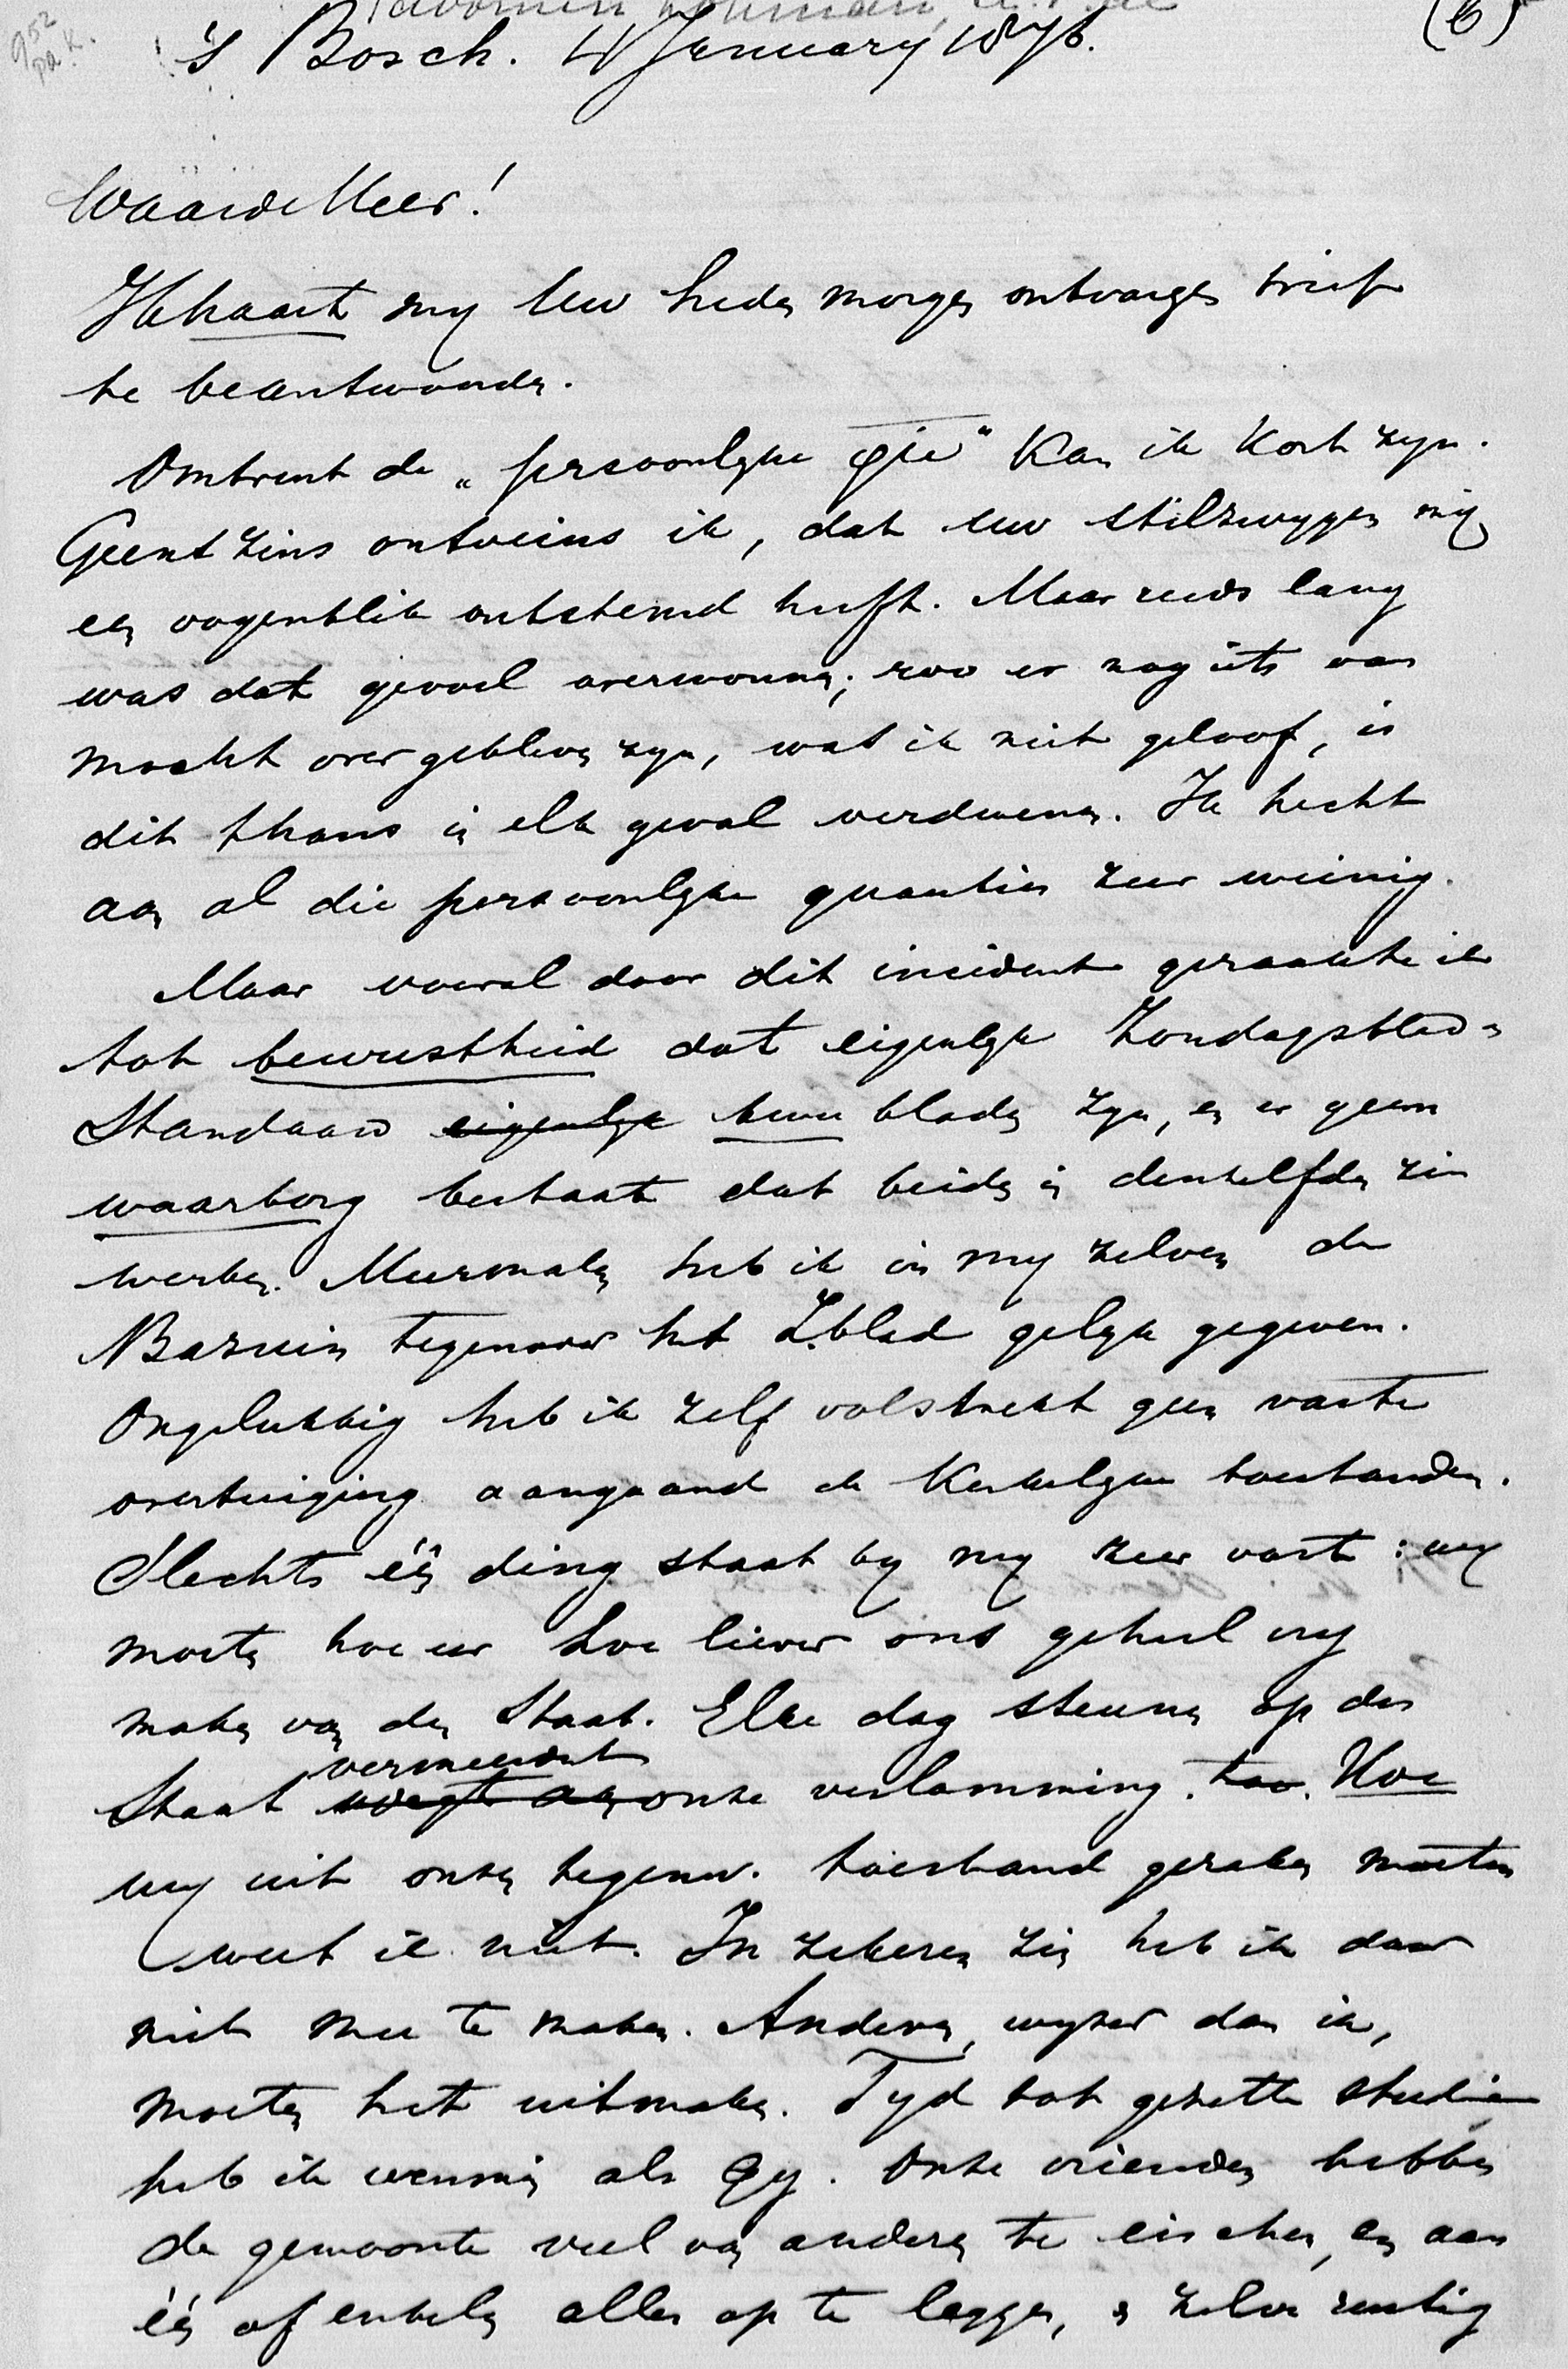 's Bosch. 4 January 1876.
(6)
Waarde Heer!
Ik haast my Uw heden morgen ontvangen brief
te beantwoorden.
Omtrent de „persoonlyke qtie" kan ik kort zyn.
Geenszins ontveins ik, dat Uw stilzwygen my
een oogenblik ontstemd heeft. Maar reeds lang
was dat gevoel overwonnen; zoo er nog iets van
mocht overgebleven zyn, wat ik niet geloof, is
dit thans in elk geval verdwenen. Ik hecht
aan al die persoonlyke quaesties zeer weinig.
Maar vooral door dit incident geraakte ik
tot bewustheid dat eigenlyk Zondagsblad en
Standaard eigenlyk twee bladen zyn, en er geen
waarborg bestaat dat beiden in denzelfden zin
werken. Meermalen heb ik in my zelven de
Bazuin tegenover het Z.blad gelyk gegeven.
Ongelukkig heb ik zelf volstrekt geen vaste
overtuiging aangaande de Kerkelyke toestanden.
Slechts één ding staat by my zeer vast: wy
moeten hoe eer hoe liever ons geheel vry
maken van den Staat. Elke dag steunen op den
vermeerdert
Staat onze verlamming. Hoe
wy uit onzen tegenw. toestand geraken moeten
weet ik niet. In zekeren zin heb ik daar
niet mee te maken. Anderen, wyzer dan ik,
moeten het uitmaken. Tyd tot gezette studie
heb ik evenmin als Gy. Onze vrienden hebben
de gewoonte veel van anderen te eischen, en aan
één of enkelen alles op te leggen, en zelve rustig